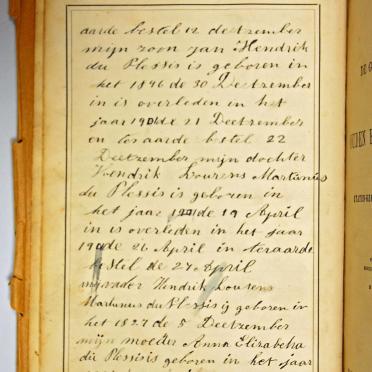 aarde bestel 12 deetzember
mijn zoon Jan Hendrik
du Plessis is geboren in
het 1896 de 30 Deetzember
in is overleden in het
jaar de 21 Deetzember
en teraarde bestel 22
Deetzember mijn dochter
Hendrik Lourens Martinus
du Plessis is geboren in
het jaar de 19 April
in is overleden in het jaar
de 26 April in teraarde
bestel de 27 April
mijvader Hendrik Lourens
Martinus du Plessis geboren in
het 1827 de 5 Deetzember
mijn moeder Anna Elizabetha
du Plessis geboren in het jaar